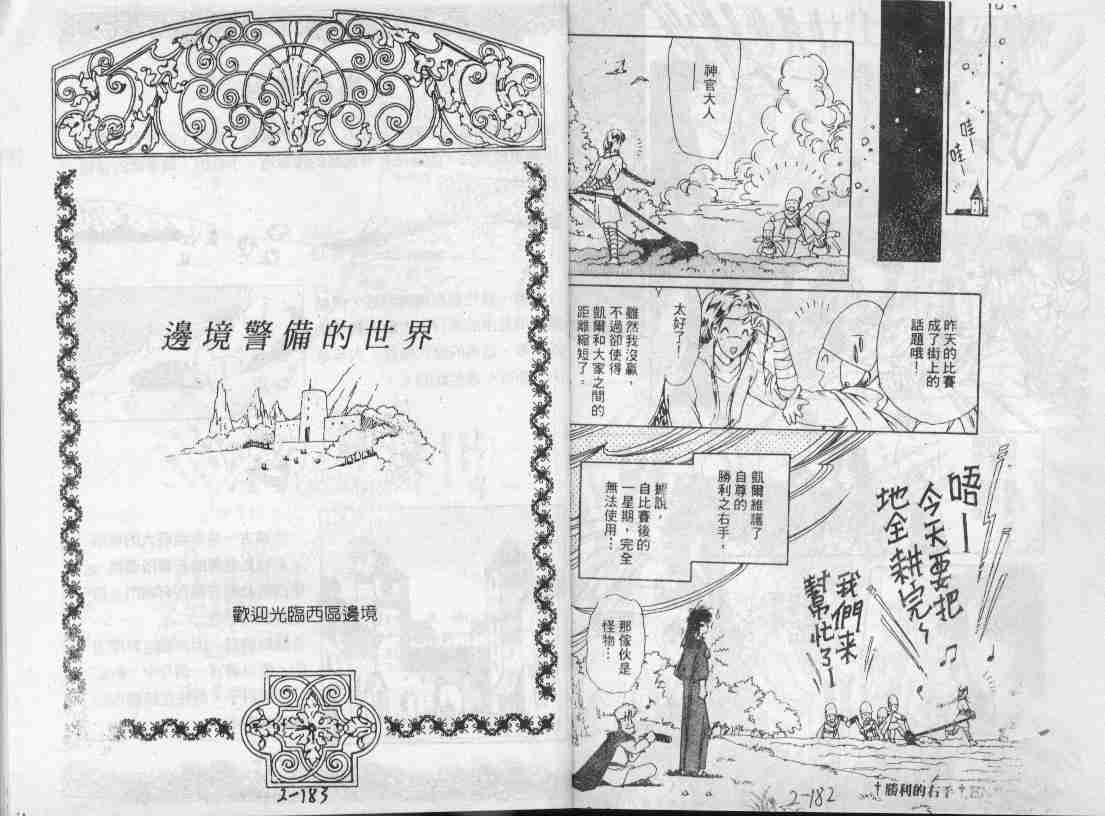 哇—
哇—
神官大人
—
昨天的比賽
成了街上的
話題哦！
太好了！
雖然我沒贏，
不過卻使得
凱爾和大家之間的
距離縮短了。
唔—
今天要把
地全耕完～
我們来
幫忙了—
凱爾維護了
自尊的
勝利之右手，
據說，
自比賽後的
一星期，完全
無法使用…
那傢伙是
怪物…
†勝利的右手†
2-182
邊境警備的世界
歡迎光臨西區邊境
2-183